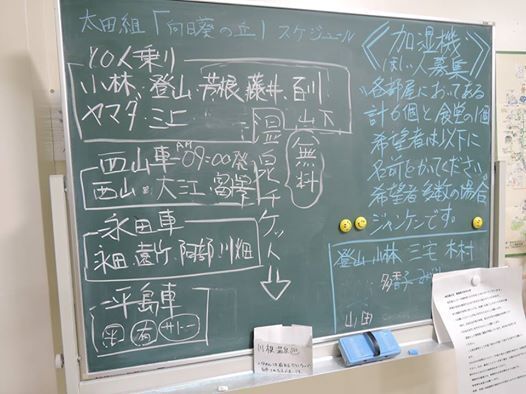 太田組「向日葵の丘」スケジュール
10人乗り
小林、登山、芦根、藤井、百川
ヤマダ、三上 山下
西山車 AM 09:00発
西山 大江、留学
永田車
永田、遠竹、阿部、川畑
平島車
サトー
温泉チケット
無料
加湿機
ほしい人募集
各部屋においてある
計6個と食堂の1個
希望者は以下に
名前をかいてください。
希望者多数の場合
ジャンケンです。
登山 小林 三宅 木村
山田
川根温泉